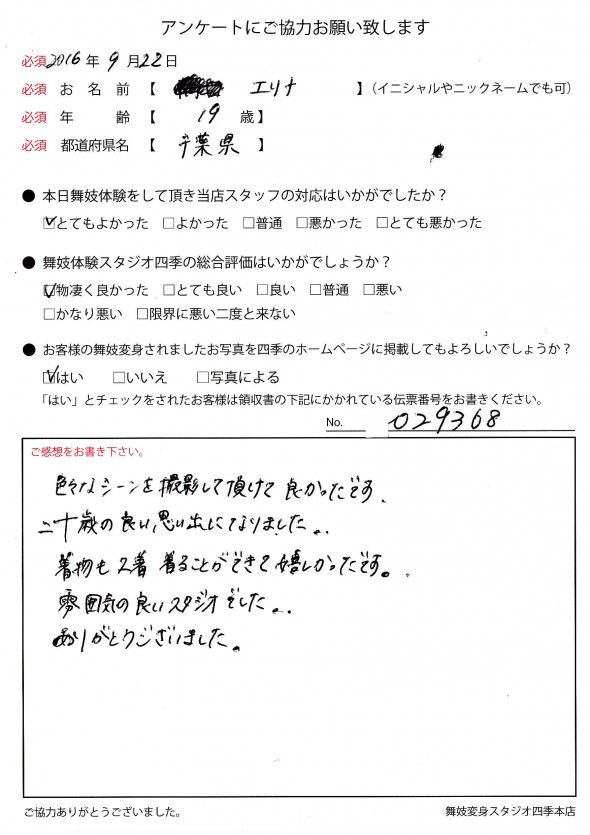 アンケートにご協力お願い致します
必須 2016年 9月 22日
必須 お名前 【 エリナ 】(イニシャルやニックネームでも可)
必須 年齢 【 19 歳】
必須 都道府県名 【 千葉県 】
● 本日舞妓体験をして頂き当店スタッフの対応はいかがでしたか?
☑とてもよかった □よかった □普通 □悪かった □とても悪かった
● 舞妓体験スタジオ四季の総合評価はいかがでしょうか?
☑物凄く良かった □とても良い □良い □普通 □悪い
□かなり悪い □限界に悪い二度と来ない
● お客様の舞妓変身されましたお写真を四季のホームページに掲載してもよろしいでしょうか?
☑はい □いいえ □写真による
「はい」とチェックをされたお客様は領収書の下記にかかれている伝票番号をお書きください。
No. 029368
ご感想をお書き下さい。
色々なシーンを撮影して頂けて良かったです.
二十歳の良い思い出になりました..
着物も2着着ることができて嬉しかったです。
雰囲気の良いスタジオでした..
ありがとうございました。
ご協力ありがとうございました。
舞妓変身スタジオ四季本店